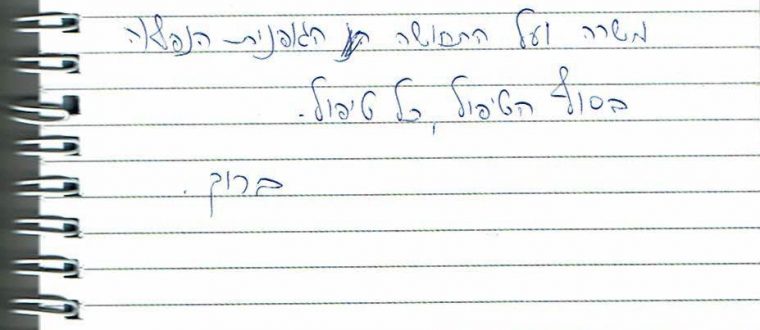 משרה ועל התחושה הגופנית הנפשית
בסוף הטיפול, כל טיפול.
ברוך.